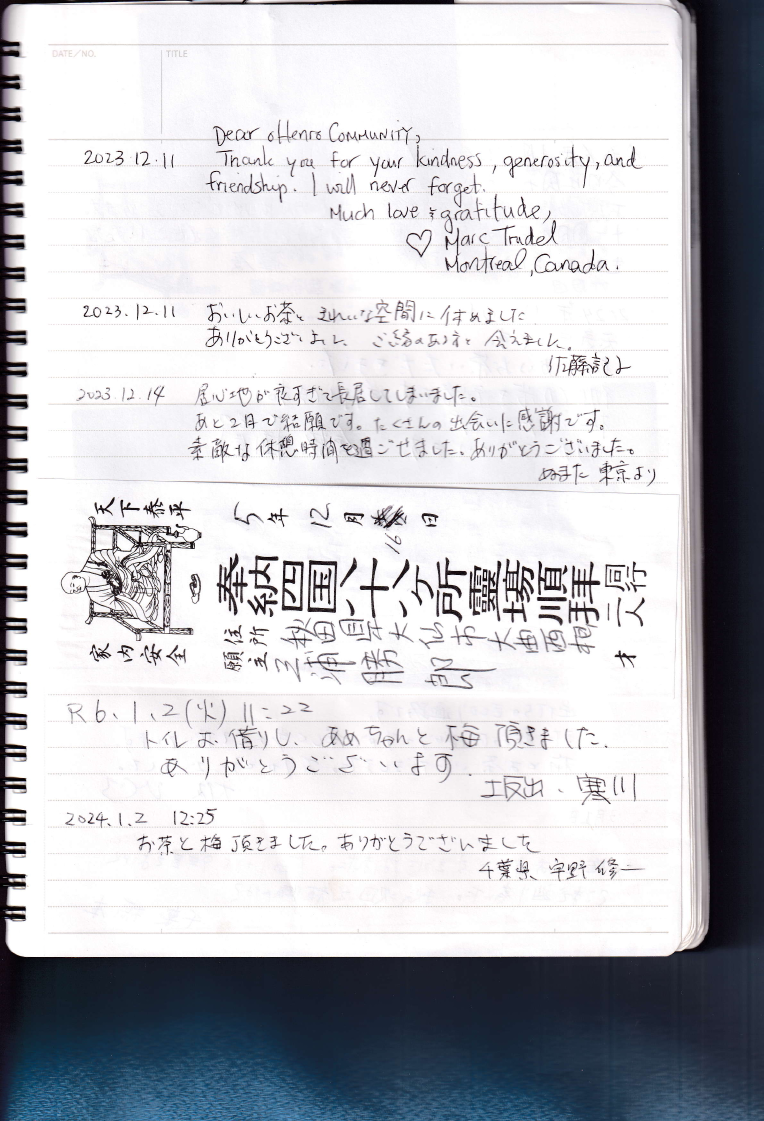 DATE/NO.
TITLE
Dear oHenro COMMUNITY,
2023.12.11 Thank you for your kindness, generosity, and
friendship. I will never forget.
Much love & gratitude,
♡ Marc Trudel
Montreal, Canada.
2023.12.11 おいしいお茶と きれいな空間に休めました
ありがとうございました ご縁のあるお 会えました。
佐藤
2023.12.14 居心地が良すぎて長居してしまいました。
あと2日で結願です。たくさんの出会いに感謝です。
素敵な休憩時間を過ごせました。ありがとうございました。
ぬまた 東京より
天下泰平
家内安全
5年 12月 16日
奉納四国八十八ケ所靈場順拝
同行二人
住所 秋田県大仙市大曲西根
願主 三浦勝郎
才
R6.1.2(火) 11:22
トイレお借りし、あめちゃんと梅頂きました.
ありがとうございます.
坂出、寒川
2024.1.2 12:25
お茶と梅頂きました。ありがとうございました
千葉県 宇野修二